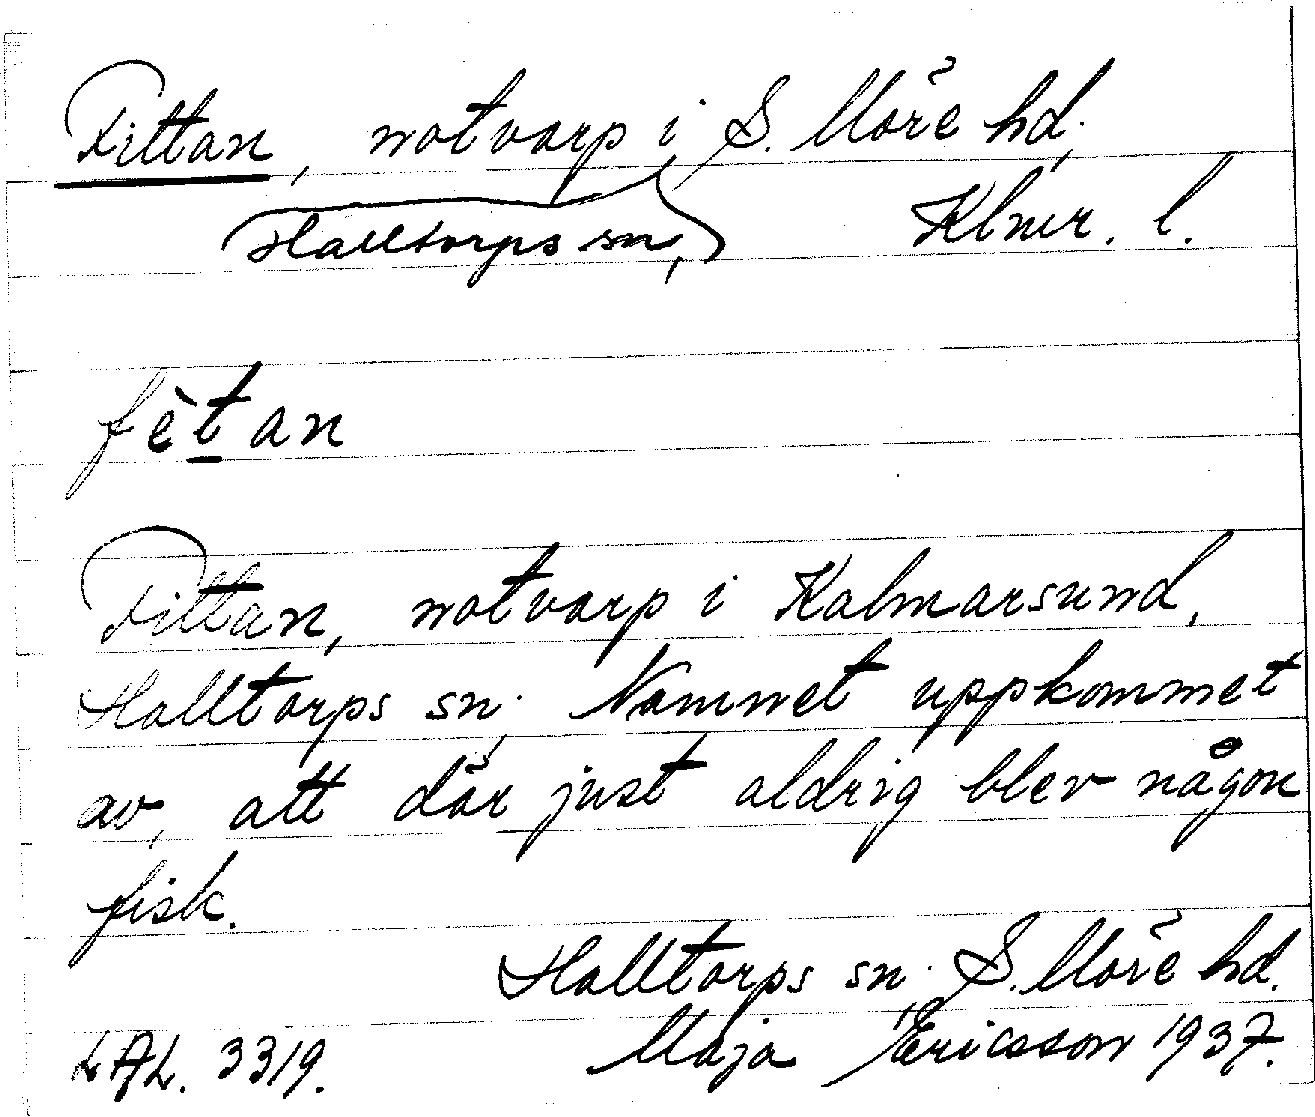 Fittan, notvarp i S. Möre hd.
Halltorps sn, Klmr. l.
fètan
Fittan, notvarp i Kalmarsund,
Halltorps sn. Namnet uppkommet
av, att där just aldrig blev någon
fisk.
Halltorps sn, S. Möre hd.
LAL. 3319. Maja Ericsson 1937.